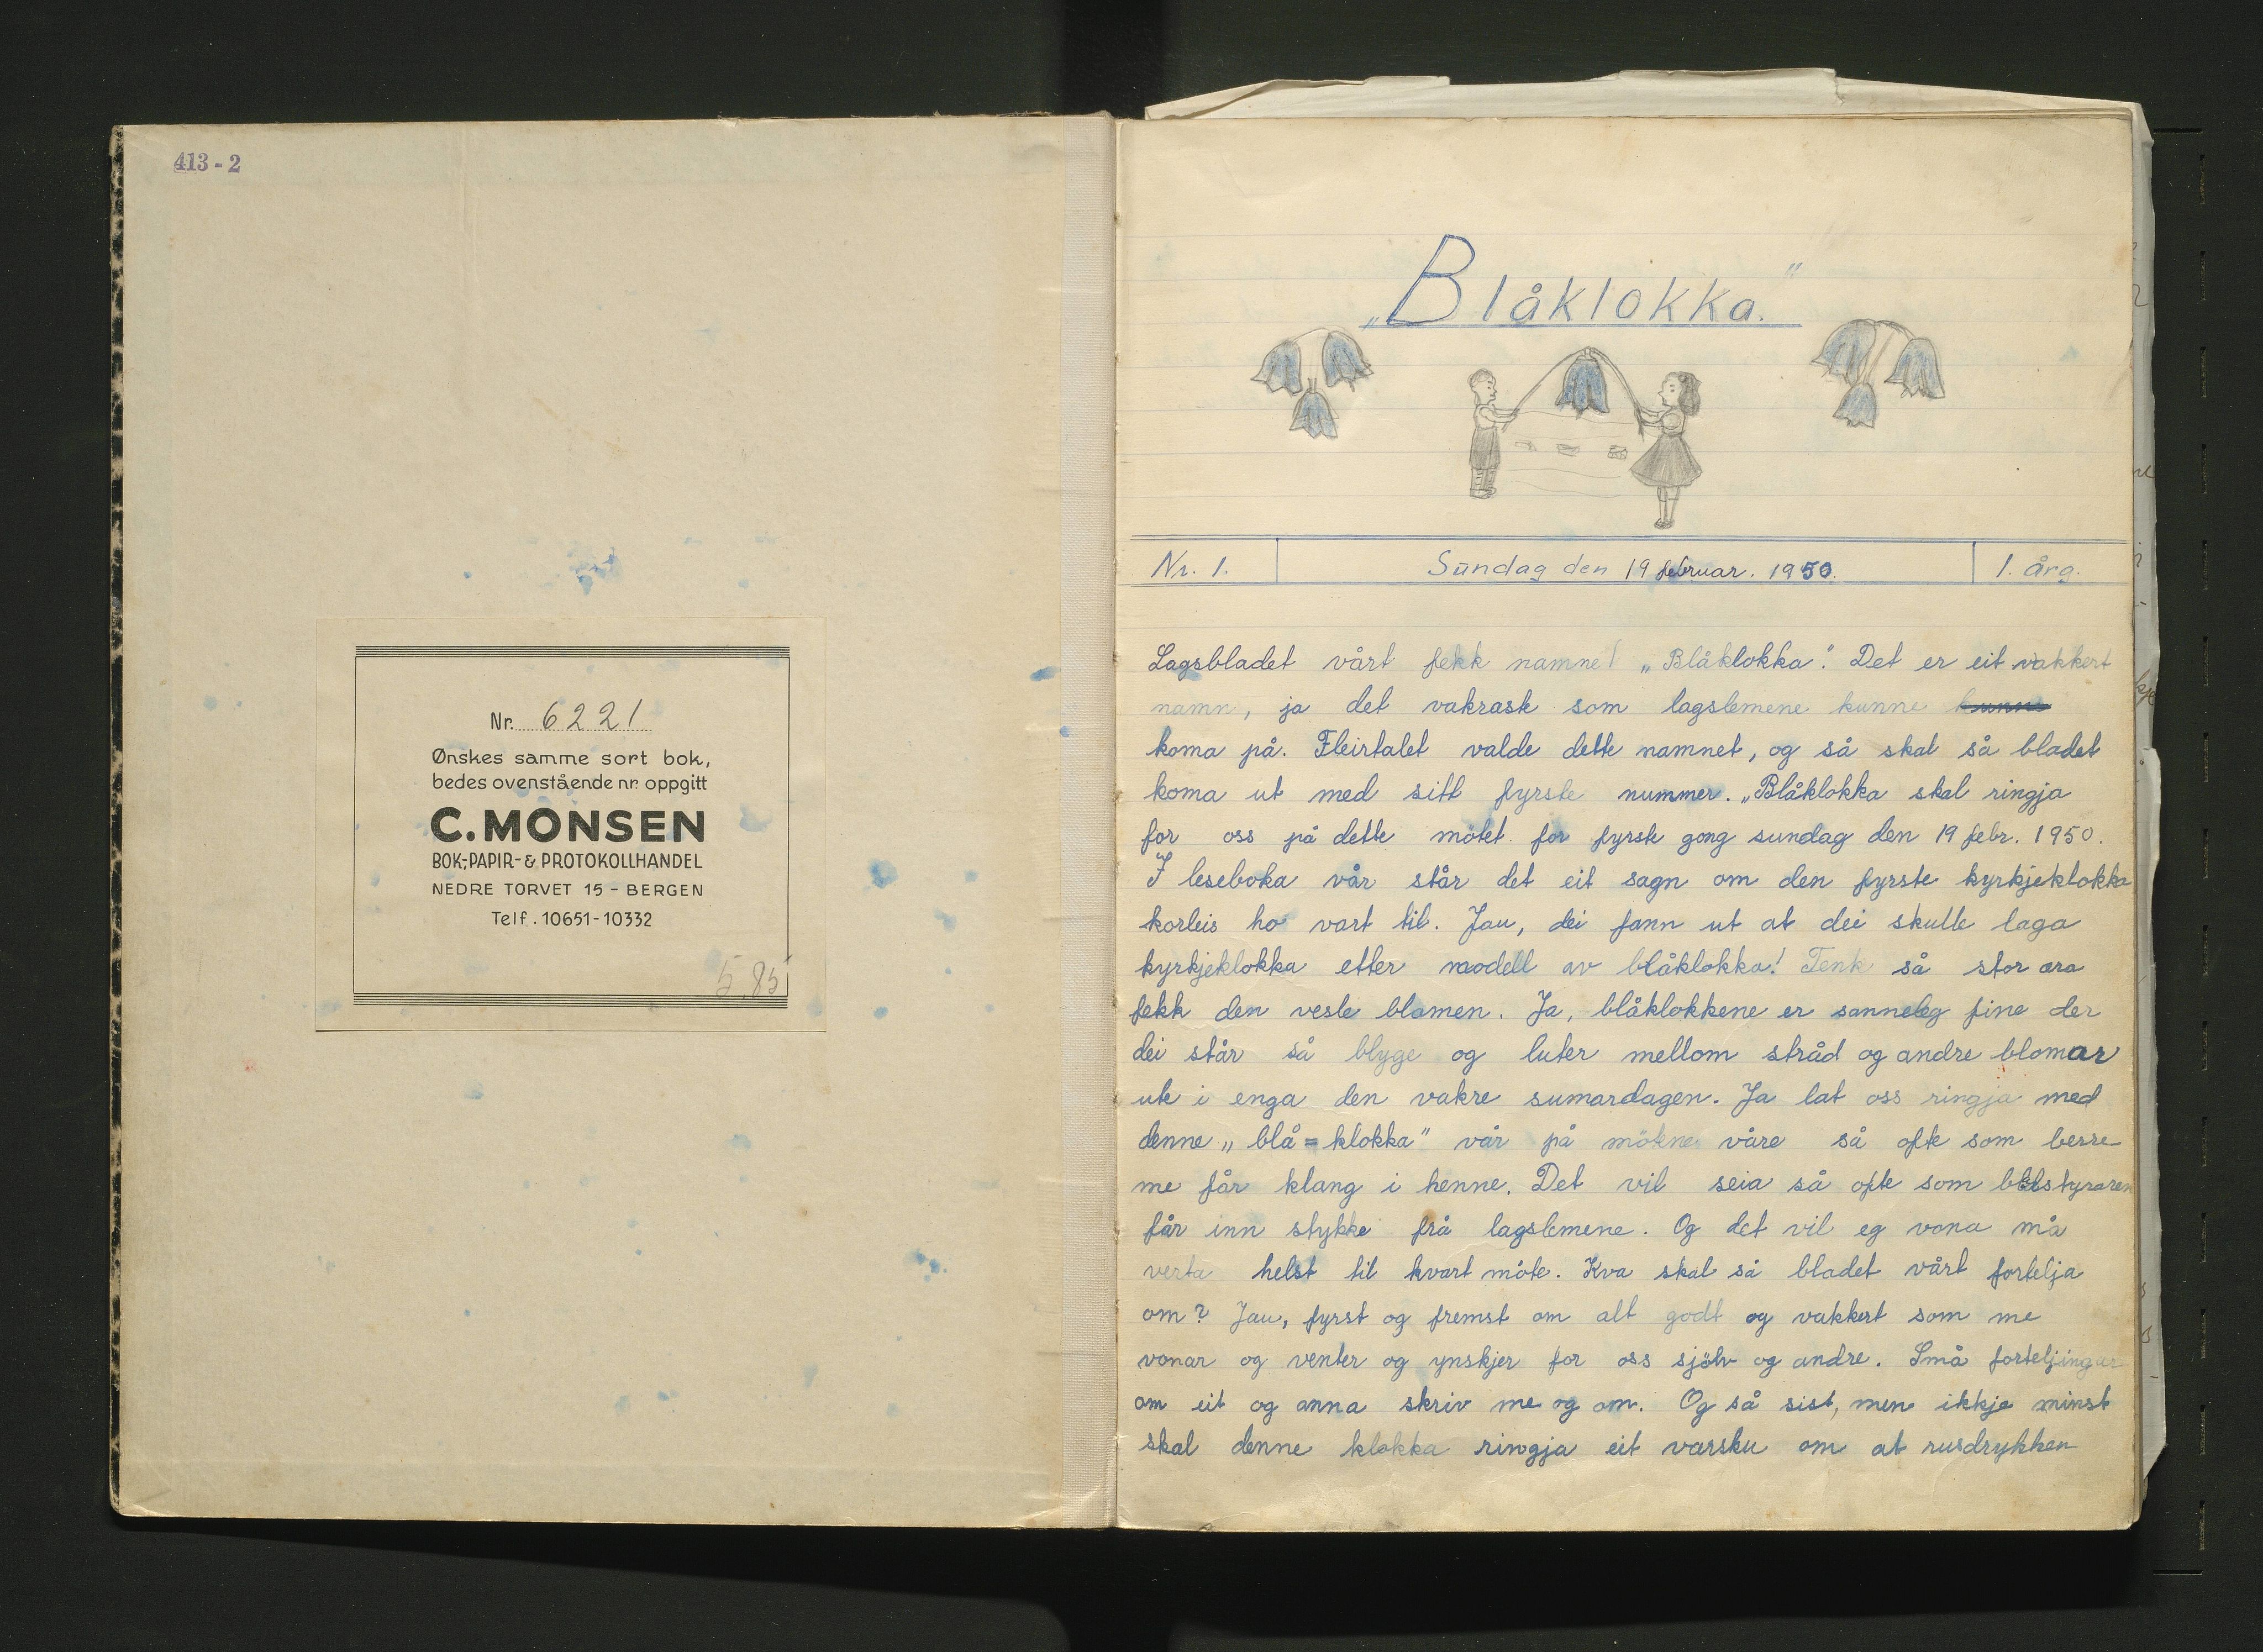 413-2
Nr. 6221
Ønskes samme sort bok,
bedes ovenstående nr. oppgitt
C. MONSEN
BOK-, PAPIR- & PROTOKOLLHANDEL
NEDRE TORVET 15 - BERGEN
Telf. 10651-10332
5.85
„Blåklokka."
Nr. 1. Sundag den 19 februar. 1950. 1. årg.
Lagsbladet vårt fekk namnet „Blåklokka". Det er eit vakkert
namn, ja det vakrask som lagslemene kunne kunne
koma på. Fleirtalet valde dette namnet, og så skal så bladet
koma ut med sitt fyrste nummer. „Blåklokka skal ringja
for oss på dette mötet for fyrste gong sundag den 19 febr. 1950.
I leseboka vår står det eit sagn om den fyrste kyrkjeklokka
korleis ho vart til. Jau, dei fann ut at dei skulle laga
kyrkjeklokka etter modell av blåklokka! Tenk så stor æra
fekk den vesle blomen. Ja, blåklokkene er sanneleg fine der
dei står så blyge og luter mellom stråd og andre blomar
ute i enga den vakre sumardagen. Ja lat oss ringja med
denne „blå=klokka" vår på mötene våre så ofte som berre
me får klang i henne. Det vil seia så ofte som bladstyraren
får inn stykke frå lagslemene. Og det vil eg vona må
verta helst til kvart möte. Kva skal så bladet vårt fortelja
om? Jau, fyrst og fremst om alt godt og vakkert som me
vonar og venter og ynskjer for oss sjölv og andre. Små forteljingar
om eit og anna skriv me og om. Og så sist, men ikkje minst
skal denne klokka ringja eit varsku om at rusdrykken